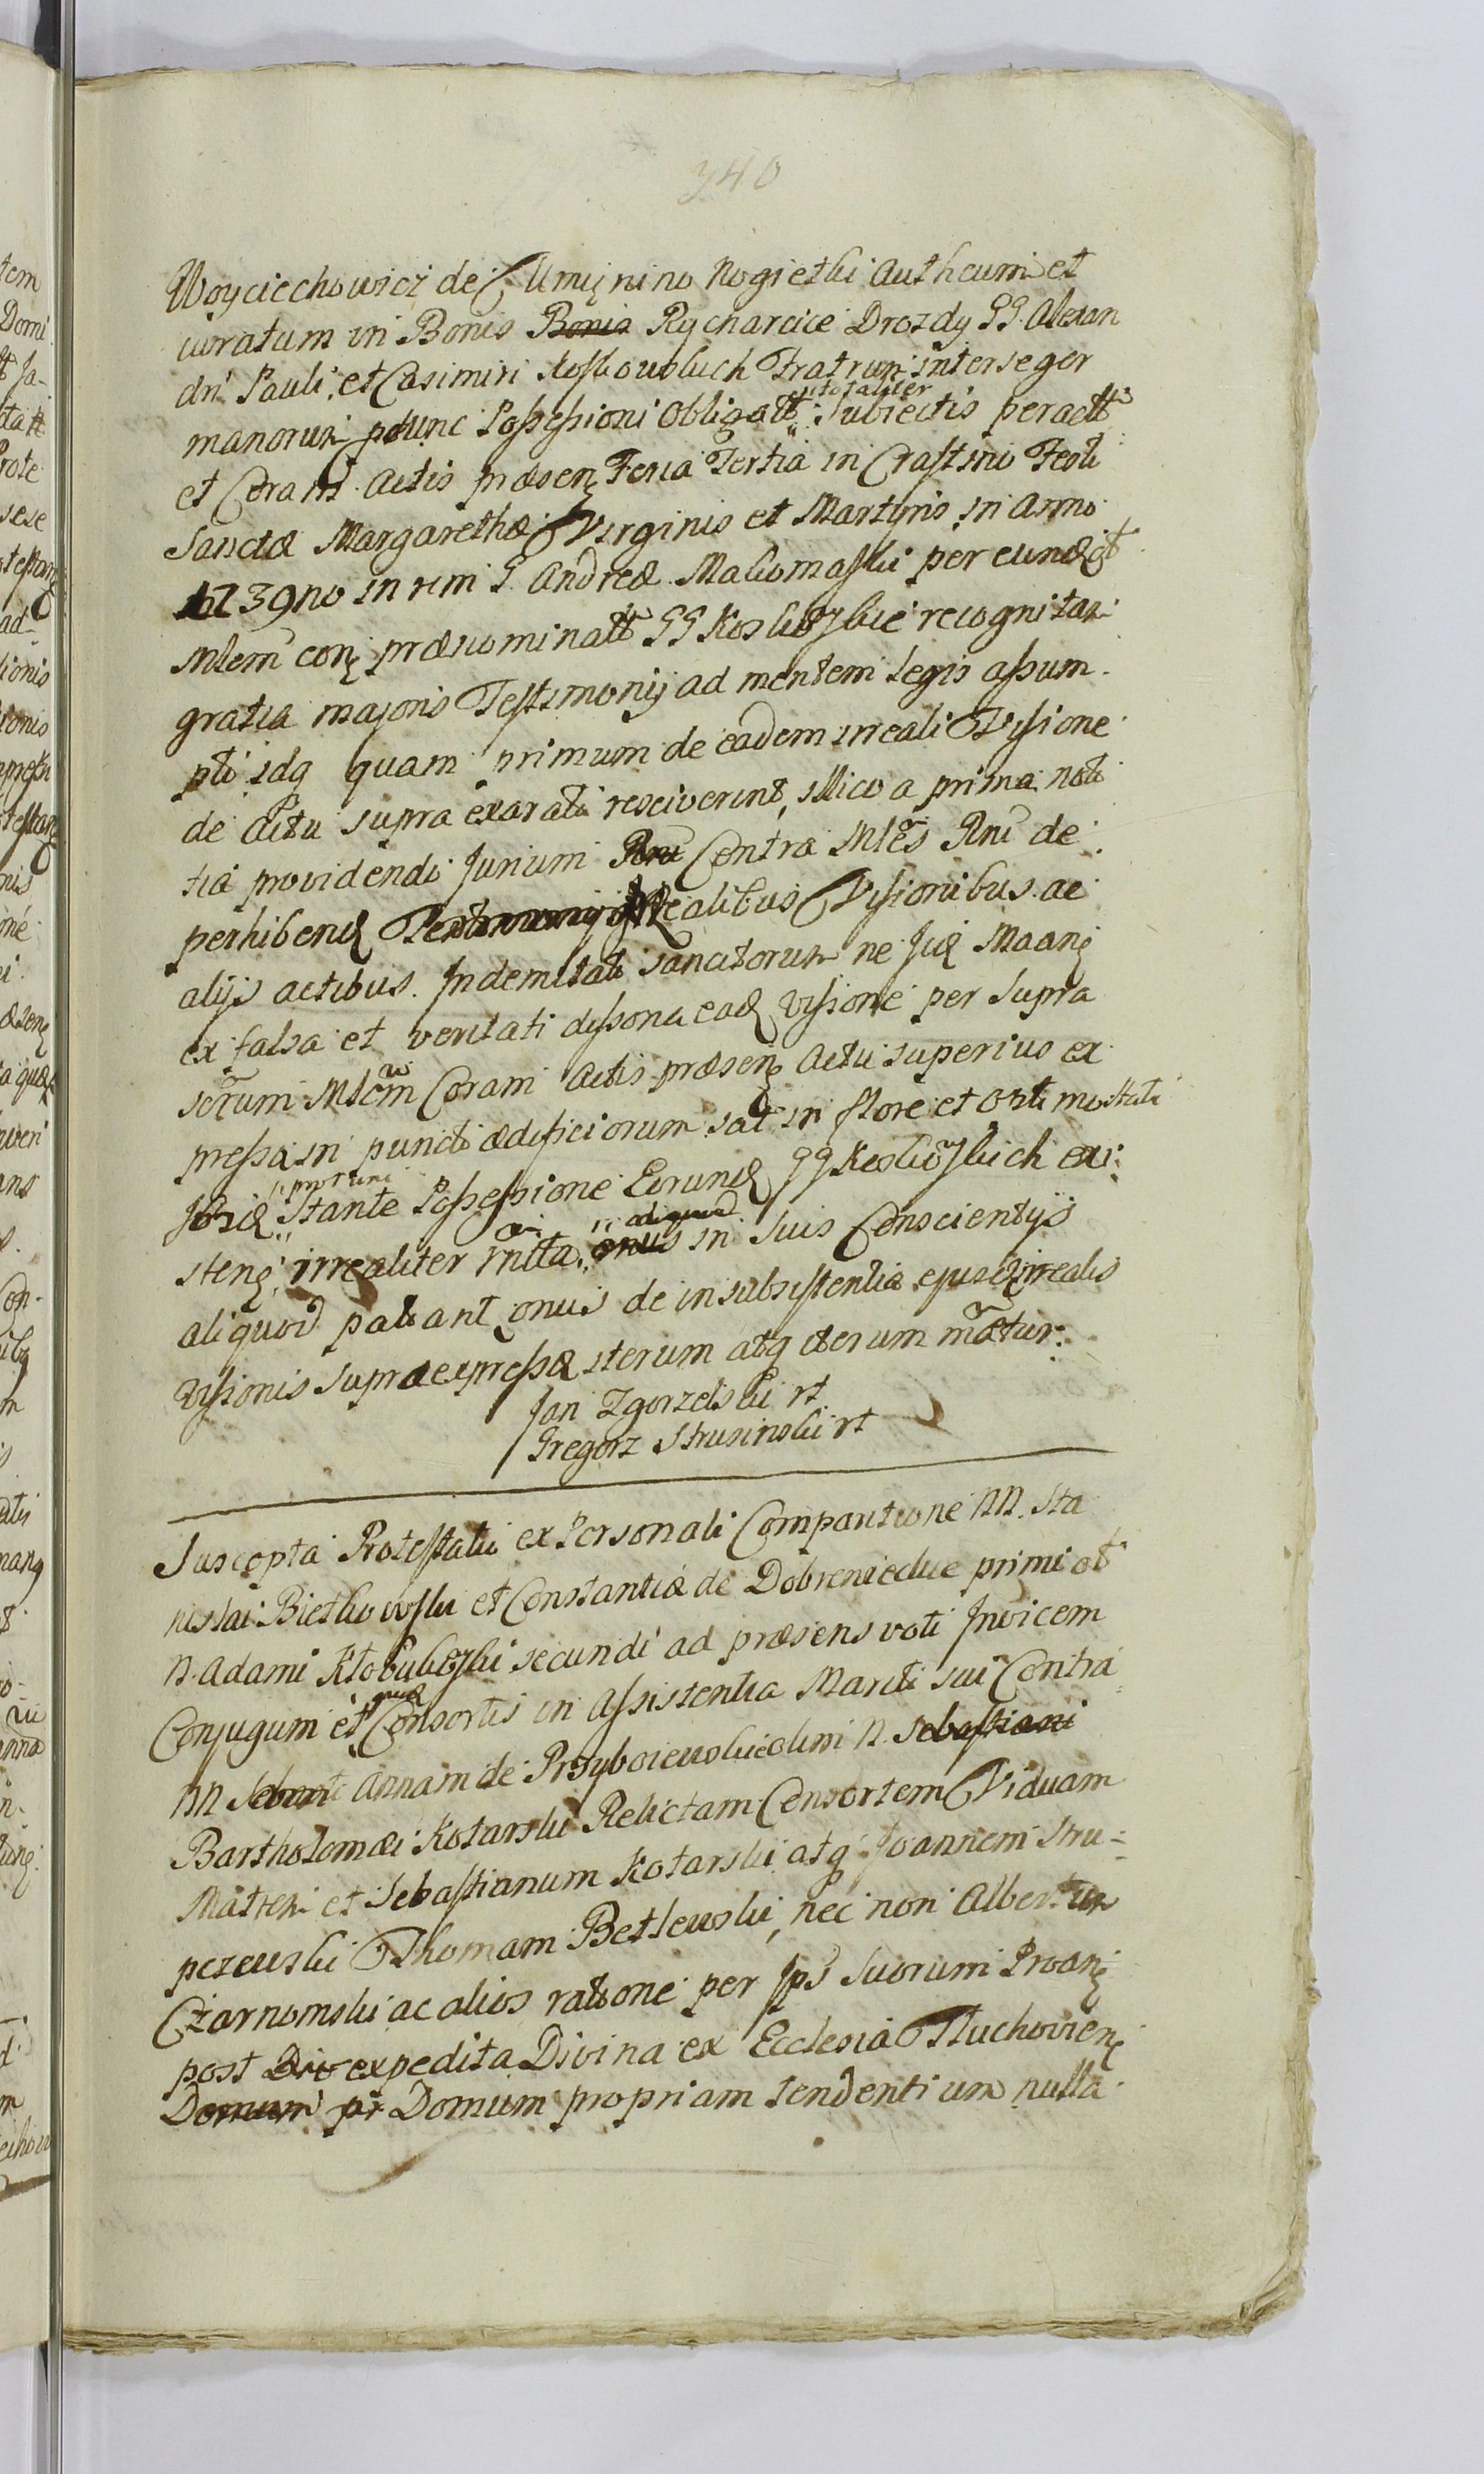 340
Woyciechowicz de Umięnino Rogietki Autheum et
iuratum in Bonis Bonis Rycharcice Drozdy GG. Alexan
dri Pauli, et Casimiri Koskowskich Fratrum inter se ger
manorum Possessioni Obligatt totaliter Subiectis peractt
et Coram Actis præsenę Feria Tertia in Crastino Festi
Sanctæ Margarethæ Virginis et Martyris in Anno
1739no in rem G. Andreæ Makomaski per eundę
Mlem conę prænominatt GG Koskowskie recognitam
gratia majoris Testimonij ad mentem Legis assum
pti idq quam primum de eadem irreali Visione
de Actu supra exarati resciverint, illico a prima noti
tia providendi Jurium Contra Mles Rni de
perhibendę Realibus Visionibus ac
alijs actibus. Indemitati sancitorum ne Juę Maanę
ex falsa et veritati dissona eadę Visione per Supra
scrum Mlem Coram Actis præsenę Actu superius ex
pressa in puncto ædificiorum sat in flore et
Stante Possessione Eorundę GG Koskowskich exi
stenę, irrealiter in Suis Conscientijs
aliquod patiant onus de insubsistentia ejusdę irrealis
Visionis supra expressæ iterum atq iterum mætur.
Jan Zgorzelski rt
Gregorz Strusinski rt
Suscepta Protestatio ex Personali Comparitione NN. Sta
nislai Bietkowski et Constantiæ de Dobrenieckie primi ot
N. Adami Kłobukowski secundi ad præsens voti Invicem
Conjugum et quę Consortis in Assistentia Mariti sui Contra
NN Annam de Przyboiewskie olim N. Sebastiani
Bartholomæi Kotarski Relictam Consortem Viduam
Matrem et Sebastianum Kotarski atq Joannem Stru-
pczewski Thomam Betlewski, nec non Albertum
Czarnomski ac alios ratione per Ips Suorum Proanę
post Div expedita Divina ex Ecclesia Tłuchovienę
Domum pr Domum propriam tendentium nulla